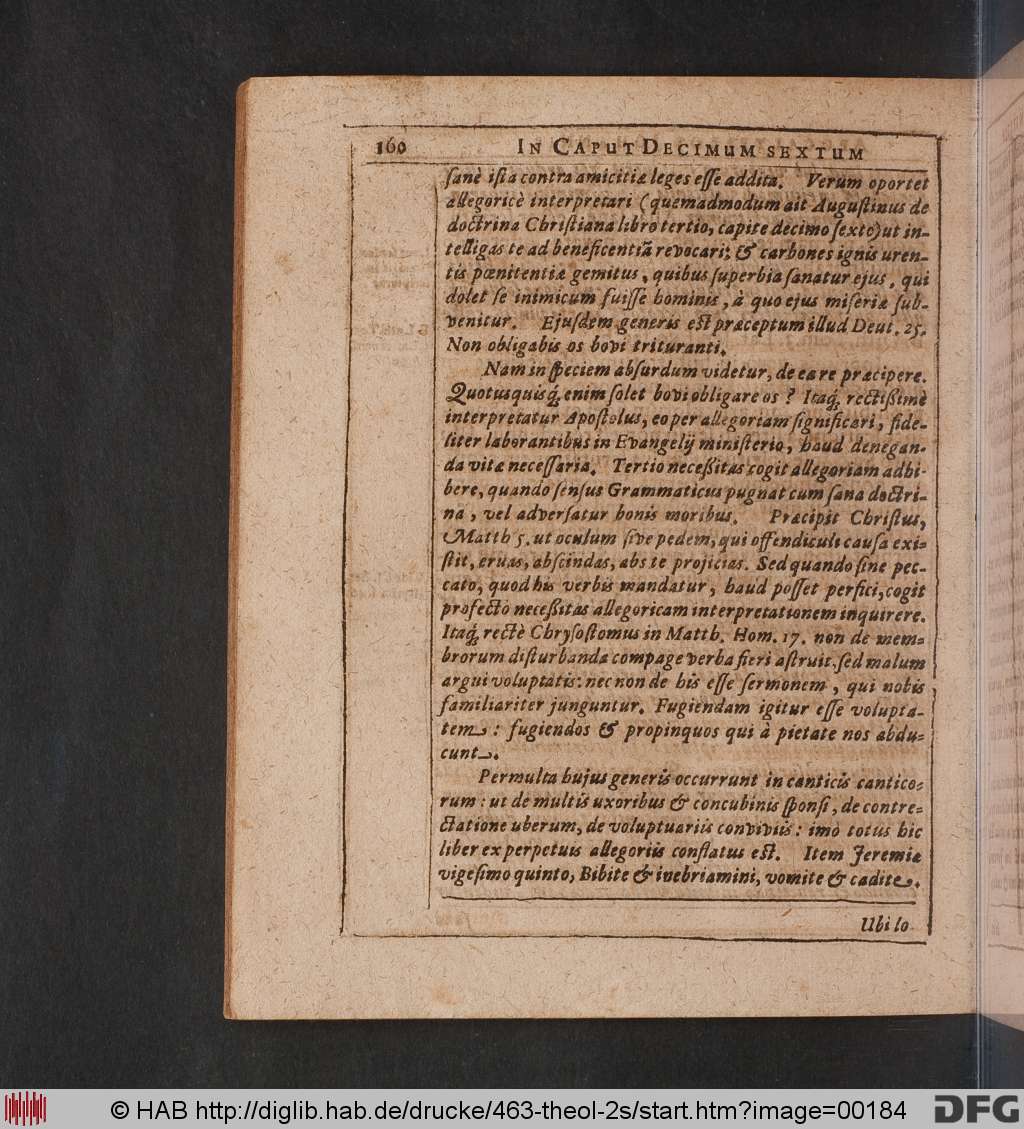 160 IN CAPUT DECIMUM SEXTUM
ſanè iſta contra amicitiæ leges eſſe addita. Verum oportet
allegoricè interpretari (quemadmodum ait Auguſtinus de
doctrina Chriſtiana libro tertio, capite decimo ſexto) ut in-
telligas te ad beneficentiã revocari; & carbones ignis uren-
tis pœnitentiæ gemitus, quibus ſuperbia ſanatur ejus, qui
dolet ſe inimicum fuiſſe hominis, à quo ejus miſeriæ ſub-
venitur. Ejuſdem generis eſt præceptum illud Deut. 25.
Non obligabis os bovi trituranti.
Nam in ſpeciem abſurdum videtur, de ea re præcipere.
Quotusquisq́; enim ſolet bovi obligare os? Itaq́; rectißimè
interpretatur Apoſtolus, eo per allegoriam ſignificari, fide-
liter laborantibus in Evangelij miniſterio, haud denegan-
da vitæ neceſſaria. Tertio neceßitas cogit allegoriam adhi-
bere, quando ſenſus Grammaticus pugnat cum ſana doctri-
na, vel adverſatur bonis moribus. Præcipit Chriſtus,
Matth 5. ut oculum ſive pedem, qui offendiculi cauſa exi-
ſtit, eruas, abſcindas, abs te projicias. Sed quando ſine pec-
cato, quod his verbis mandatur, haud poſſet perfici, cogit
profectò neceßitas allegoricam interpretationem inquirere.
Itaq́; rectè Chryſoſtomus in Matth. Hom. 17. non de mem-
brorum diſturbanda compage verba fieri aſtruit, ſed malum
argui voluptatis: nec non de his eſſe ſermonem, qui nobis
familiariter junguntur. Fugiendam igitur eſſe volupta-
tem: fugiendos & propinquos qui à pietate nos abdu-
cunt.
Permulta hujus generis occurrunt in canticis cantico-
rum: ut de multis uxoribus & concubinis ſponſi, de contre-
ctatione uberum, de voluptuariis conviviis: imò totus hic
liber ex perpetuis allegoriis conflatus eſt. Item Jeremiæ
vigeſimo quinto, Bibite & inebriamini, vomite & cadite.
Ubi lo
© HAB http://diglib.hab.de/drucke/463-theol-2s/start.htm?image=00184 DFG